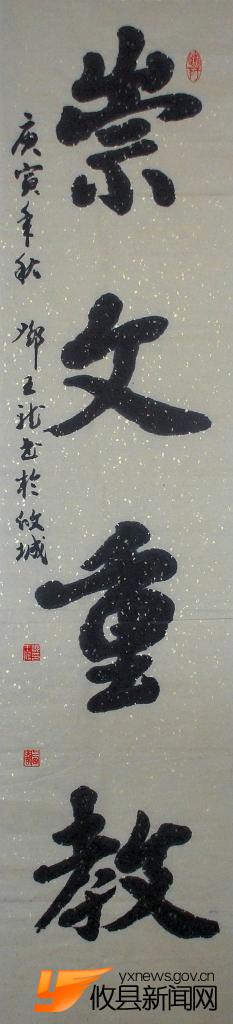 崇文重教
庚寅年秋 邓玉龙书于攸城
yxnews.gov.cn
攸县新闻网